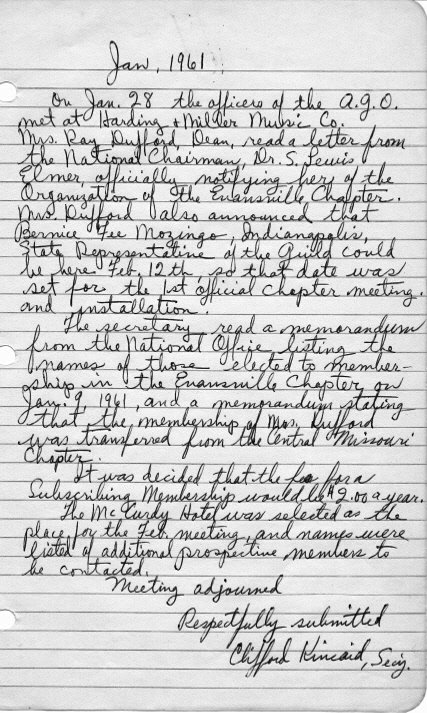 Jan, 1961
On Jan. 28 the officers of the A.G.O.
met at Harding & Miller Music Co.
Mrs. Ray Dufford, Dean, read a letter from
the National Chairman, Dr. S. Lewis
Elmer, officially notifying her of the
Organization of the Evansville Chapter.
Mrs Dufford also announced that
Bernice Fee Mozingo, Indianapolis,
State Representative of the Guild could
be here Feb. 12th, so that date was
set for the 1st official Chapter meeting.
and installation.
The secretary read a memorandum
from the National Office listing the
names of those elected to member-
ship in the Evansville Chapter on
Jan. 9, 1961, and a memorandum stating
that the membership of Mrs. Dufford
was transferred from the Central Missouri
Chapter.
It was decided that the fee for a
Subscribing Membership would be $2.00 a year.
The McCurdy Hotel was selected as the
place for the Feb. meeting, and names were
listed of additional prospective members to
be contacted.
Meeting adjourned
Respectfully submitted
Clifford Kincaid, Secy.